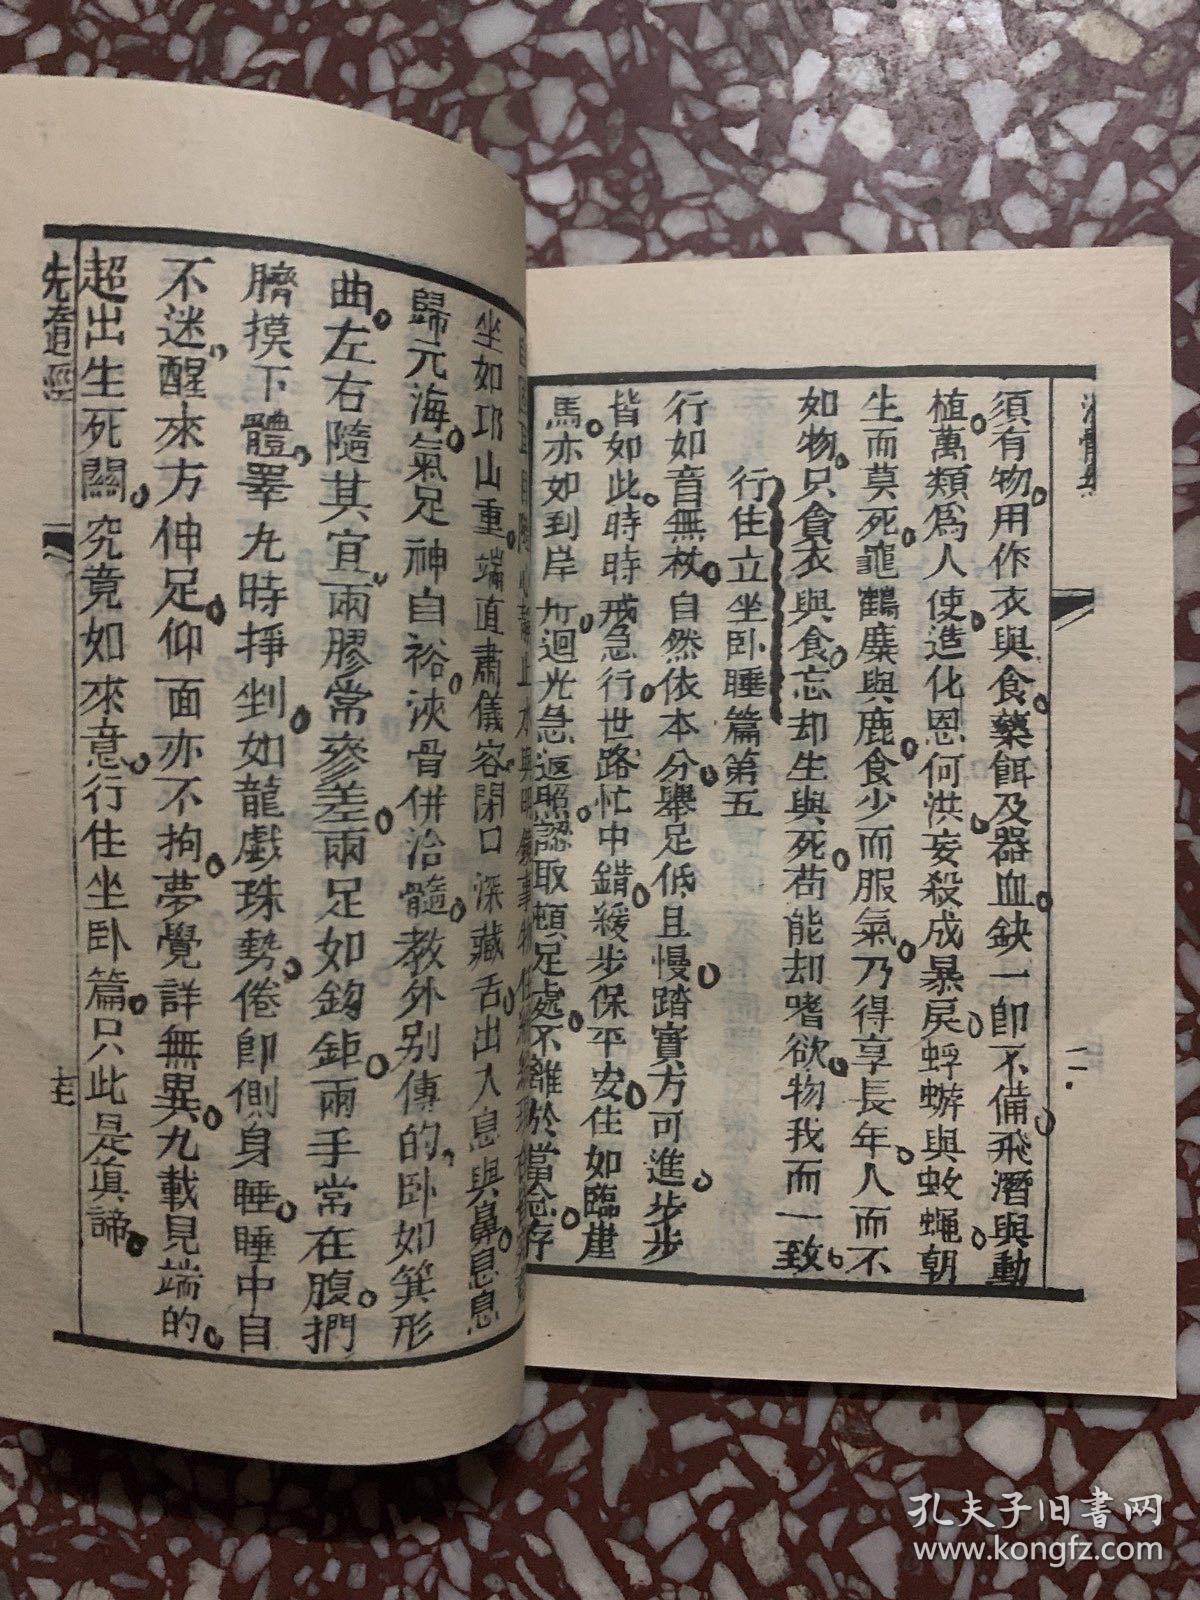 須有物用作衣與食藥餌及器血缺一卽不備飛潛與動
植萬類爲人使造化恩何洪妄殺成暴戾蜉蝣與蚊蠅朝
生而莫死龜鶴麋與鹿食少而服氣乃得享長年人而不
如物只貪衣與食忘却生與死苟能却嗜欲物我而一致
行住立坐卧睡篇第五
行如盲無杖自然依本分舉足低且慢踏實方可進步步
皆如此時時戒急行世路忙中錯緩步保平安住如臨崖
馬亦如到岸舟迴光急返照認取頓足處不離於當念存
坐如邛山重端直肅儀容閉口深藏舌出入息與鼻息息
歸元海氣足神自裕浹骨併洽髓教外別傳的卧如箕形
曲左右隨其宜兩膠常參差兩足如鈎鉅兩手常在腹捫
臍摸下體睪丸時掙剉如龍戲珠勢倦卽側身睡睡中自
不迷醒來方伸足仰面亦不拘夢覺詳無異九載見端的
超出生死關究竟如來意行住坐卧篇只此是眞諦
孔夫子旧書网
www.kongfz.com